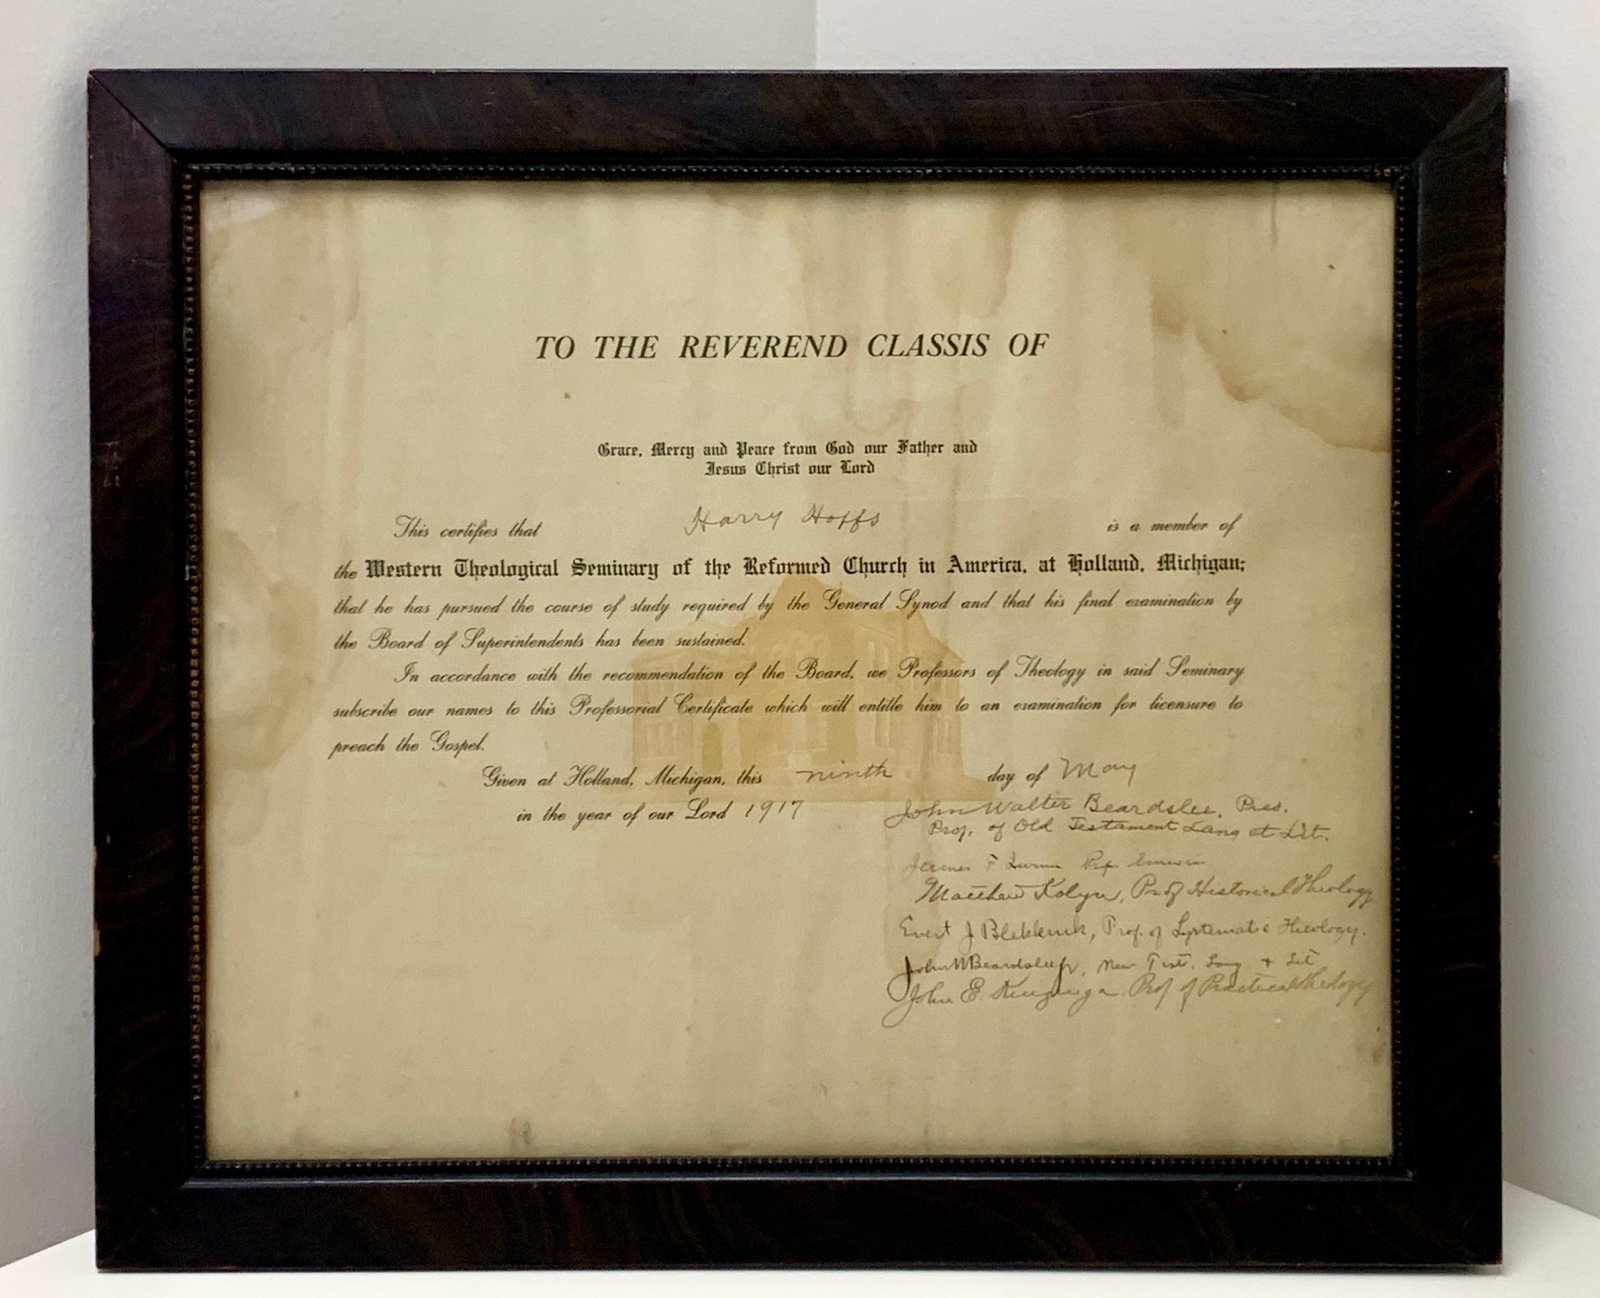 TO THE REVEREND CLASSIS OF
Grace, Mercy and Peace from God our Father and
Jesus Christ our Lord
This certifies that Harry Hoffs is a member of
the Western Theological Seminary of the Reformed Church in America, at Holland, Michigan;
that he has pursued the course of study required by the General Synod and that his final examination by
the Board of Superintendents has been sustained.
In accordance with the recommendation of the Board, we Professors of Theology in said Seminary
subscribe our names to this Professorial Certificate which will entitle him to an examination for licensure to
preach the Gospel.
Given at Holland, Michigan, this ninth day of May
in the year of our Lord 1917
John Walter Beardslee, Pres.
Prof. of Old Testament Lang et Lit.
James F
Matthew Kolyn, Prof Historical Theology
Evert J Blekkink, Prof. of Systematic Theology.
John W Beardslee Jr, New Test. Lang + Lit
John E. Kuizenga. Prof of Practical Theology